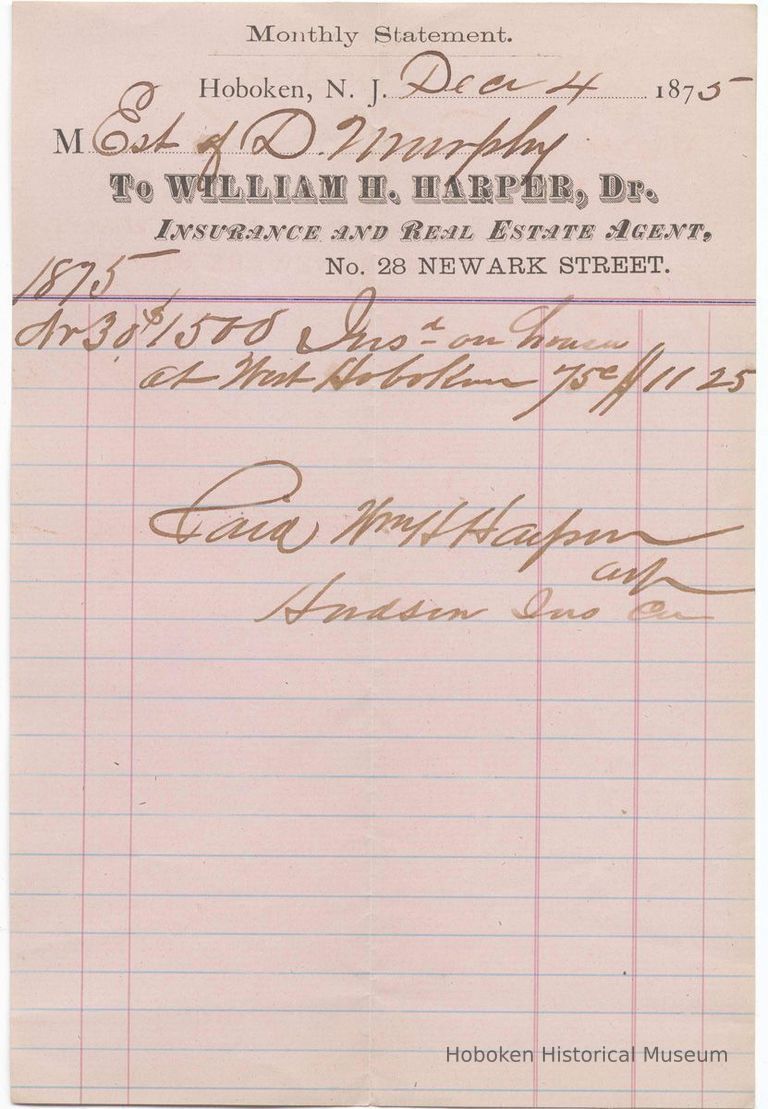 Monthly Statement.
Hoboken, N. J. Decr 4 1875
M Est of D. Murphy
To WILLIAM H. HARPER, Dr.
INSURANCE AND REAL ESTATE AGENT,
No. 28 NEWARK STREET.
1875
30 $1500 Insd on house
at West Hoboken 75c 11 25
Paid Wm H Harper
Hudson Ins Co
Hoboken Historical Museum